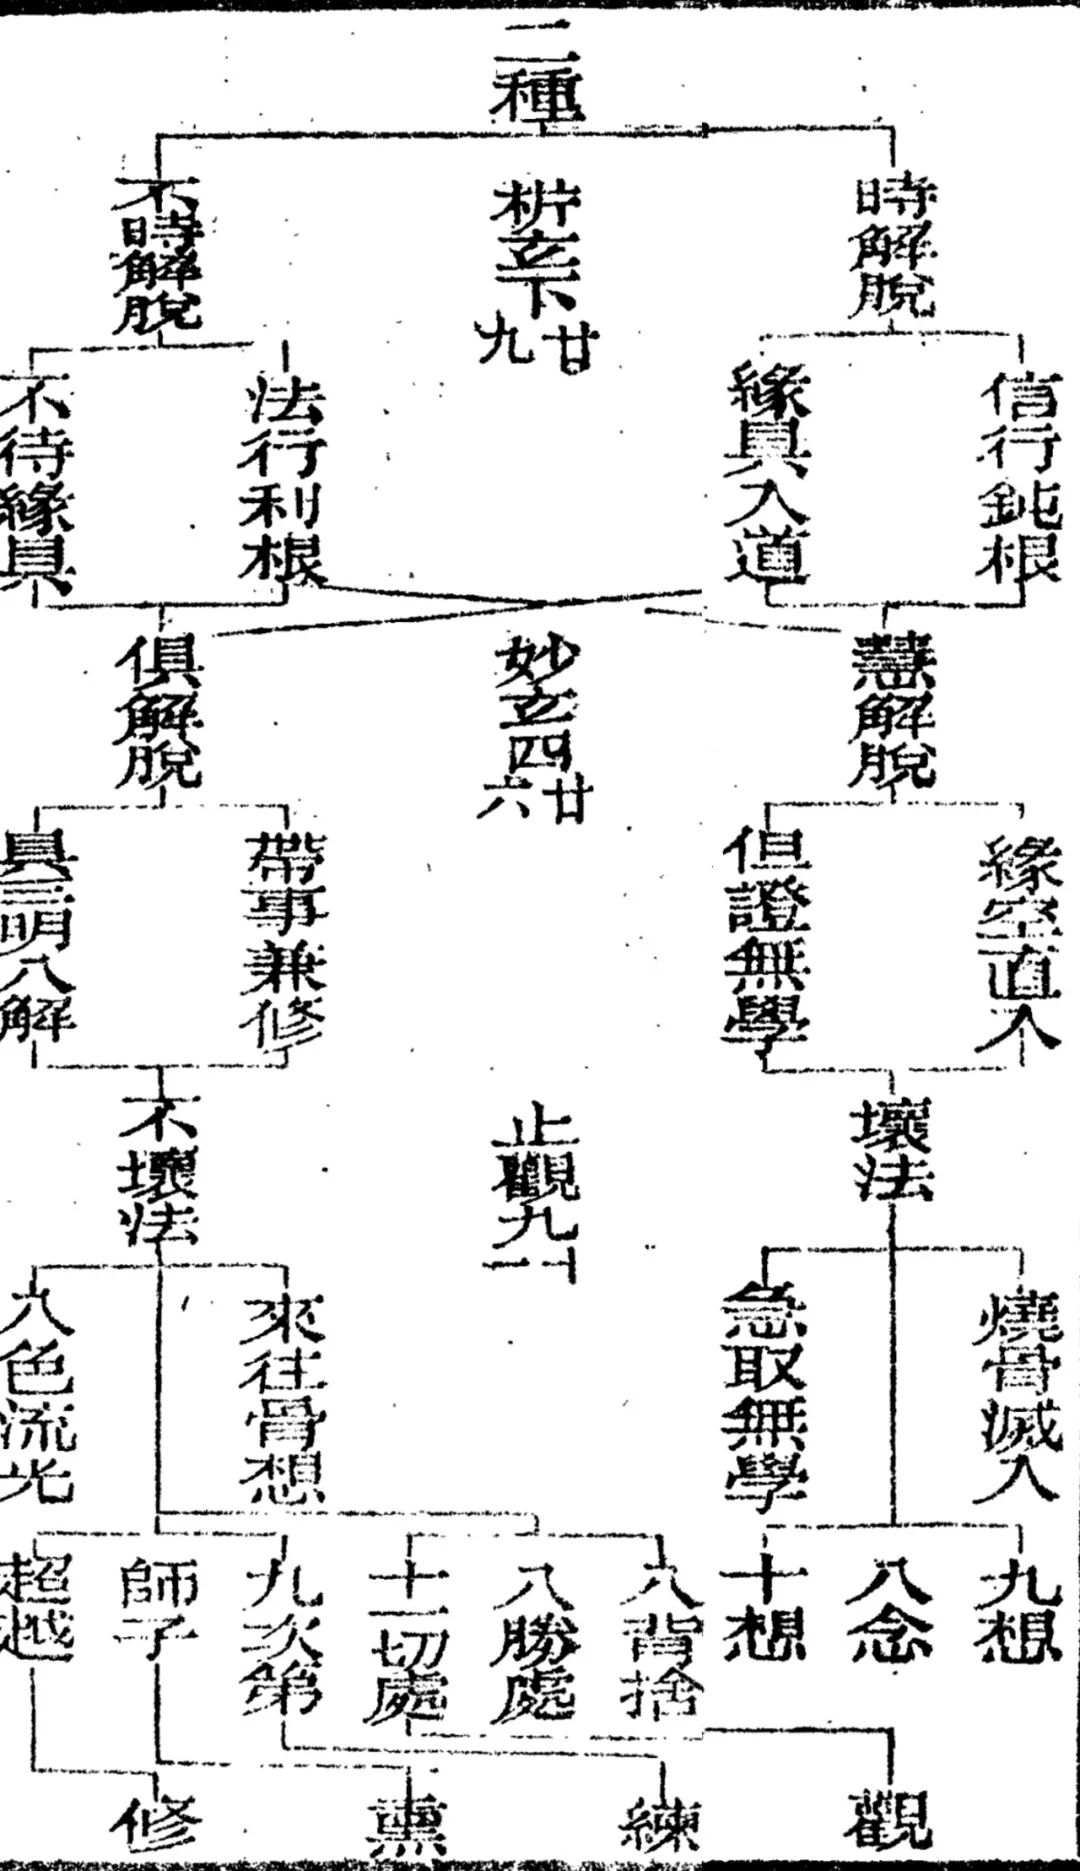 二種
時解脫
析玄下
廿九
不時解脫
信行鈍根
緣具入道
法行利根
不待緣具
慧解脫
妙玄四
廿六
俱解脫
緣空直入
但證無學
帶事兼修
具三明八解
壞法
止觀九
十一
不壞法
燒骨滅人
急取無學
來往骨想
八色流光
九想
八念
十想
八背捨
八勝處
十一切處
九次第
師子
超越
觀
練
熏
修